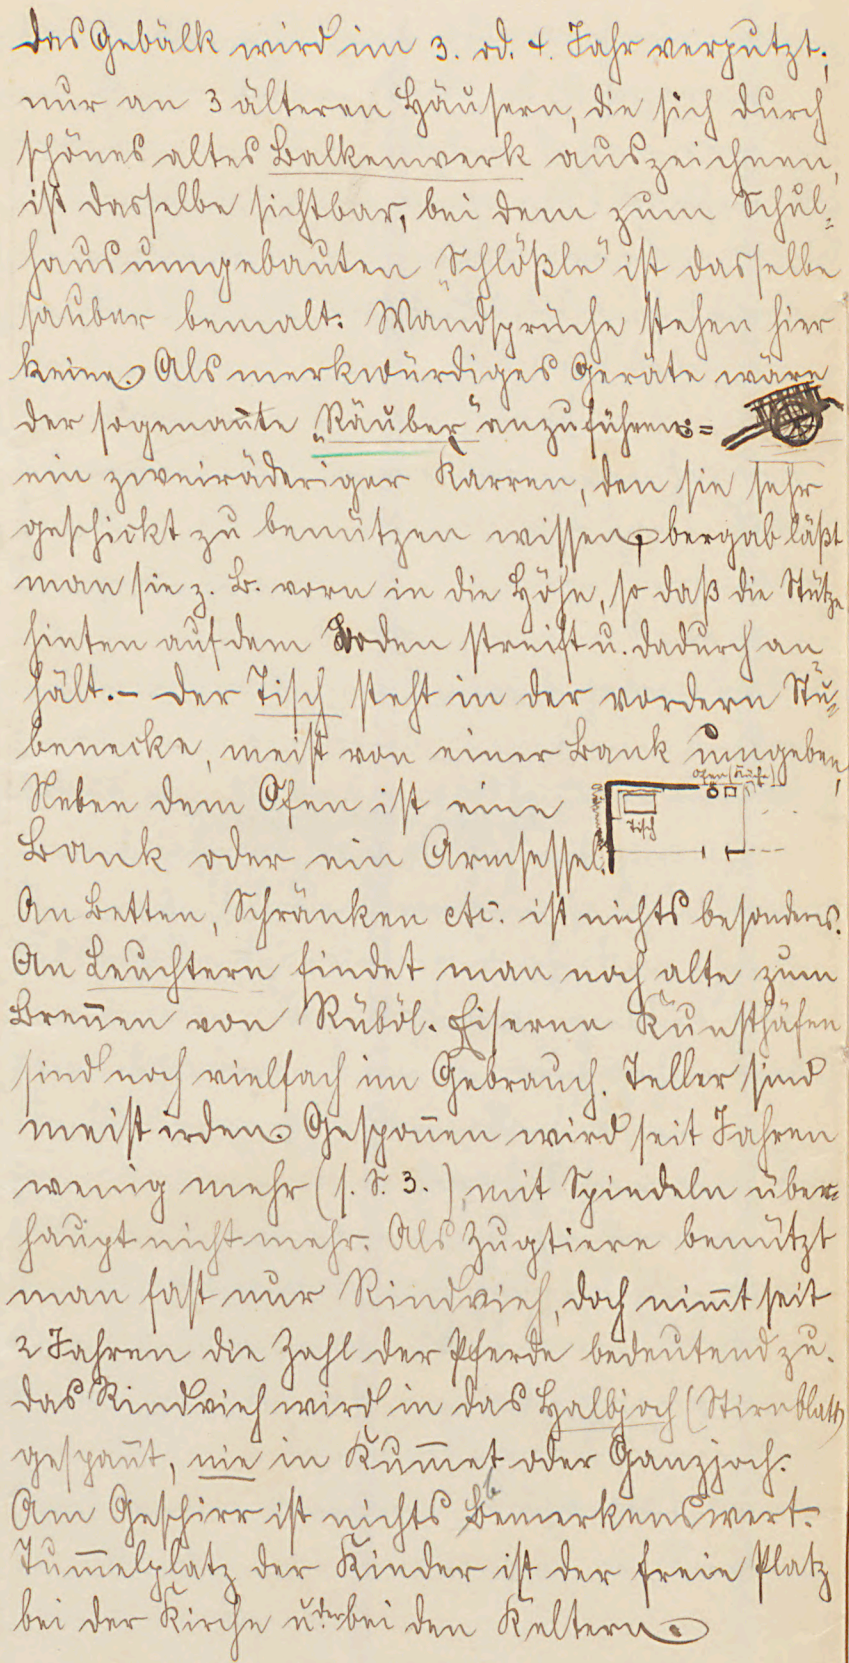 Das Gebälk wird im 3. od. 4. Jahr verputzt;
nur an 3 älteren Häusern, die sich durch
schönes altes Balkenwerk auszeichnen,
ist dasselbe sichtbar, bei dem zum Schul-
haus umgebauten „Schlößle" ist dasselbe
sauber bemalt. Wandsprüche stehen hier
keine. Als merkwürdiges Geräte wäre
der sogenan̄te „Räuber" anzuführen: =
ein zweiräderiger Karren, den sie sehr
geschickt zu benützen wissen, bergab läßt
man sie z. B. vorn in die Höhe, so daß die Stütze
hinten auf dem Boden streift u. dadurch an
hält. – Der Tisch steht in der vordern Stu-
benecke, meist von einer Bank umgeben,
Ofen (Küche)
Neben dem Ofen ist eine
Tisch
Bank oder ein Armsessel.
An Betten, Schränken etc. ist nichts besonders.
An Leuchtern findet man noch alte zum
Bren̄en von Rüböl. Eiserne Kunsthäfen
sind noch vielfach im Gebrauch. Teller sind
meist irden. Gespon̄en wird seit Jahren
wenig mehr (s. S. 3.), mit Spindeln über-
haupt nicht mehr. Als Zugtiere benützt
man fast nur Rindvieh, doch nim̄t seit
2 Jahren die Zahl der Pferde bedeutend zu.
Das Rindvieh wird in das Halbjoch (Stirnblatt)
gespan̄t, nie in Kum̄et oder Ganzjoch.
Am Geschirr ist nichts bemerkenswert.
Tum̄elplatz der Kinder ist der freie Platz
bei der Kirche u. der bei den Keltern.